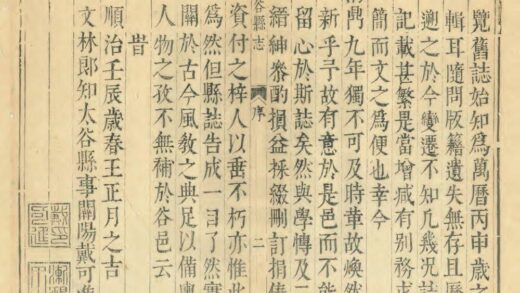 覽舊誌始知爲萬曆丙申歲之
輯耳隨問版籍遺失無存且曆
遡之於今變遷不知凡幾況誌
記載甚繁是當增減有别務求
簡而文之爲便也幸今
鼎九年獨不可及時華故煥然
新乎予故有意於是邑而不能
留心於斯誌矣然與學博及二
縉紳叅酌損益採綴刪訂捐俸
谷縣志 序 二
資付之梓人以垂不朽亦惟此
爲然但縣誌告成一目了然實
關於古今風敎之典足以備輿
人物之孜不無補於谷邑云
旹
順治壬辰歲春王正月之吉
文林郎知太谷縣事關陽戴可進